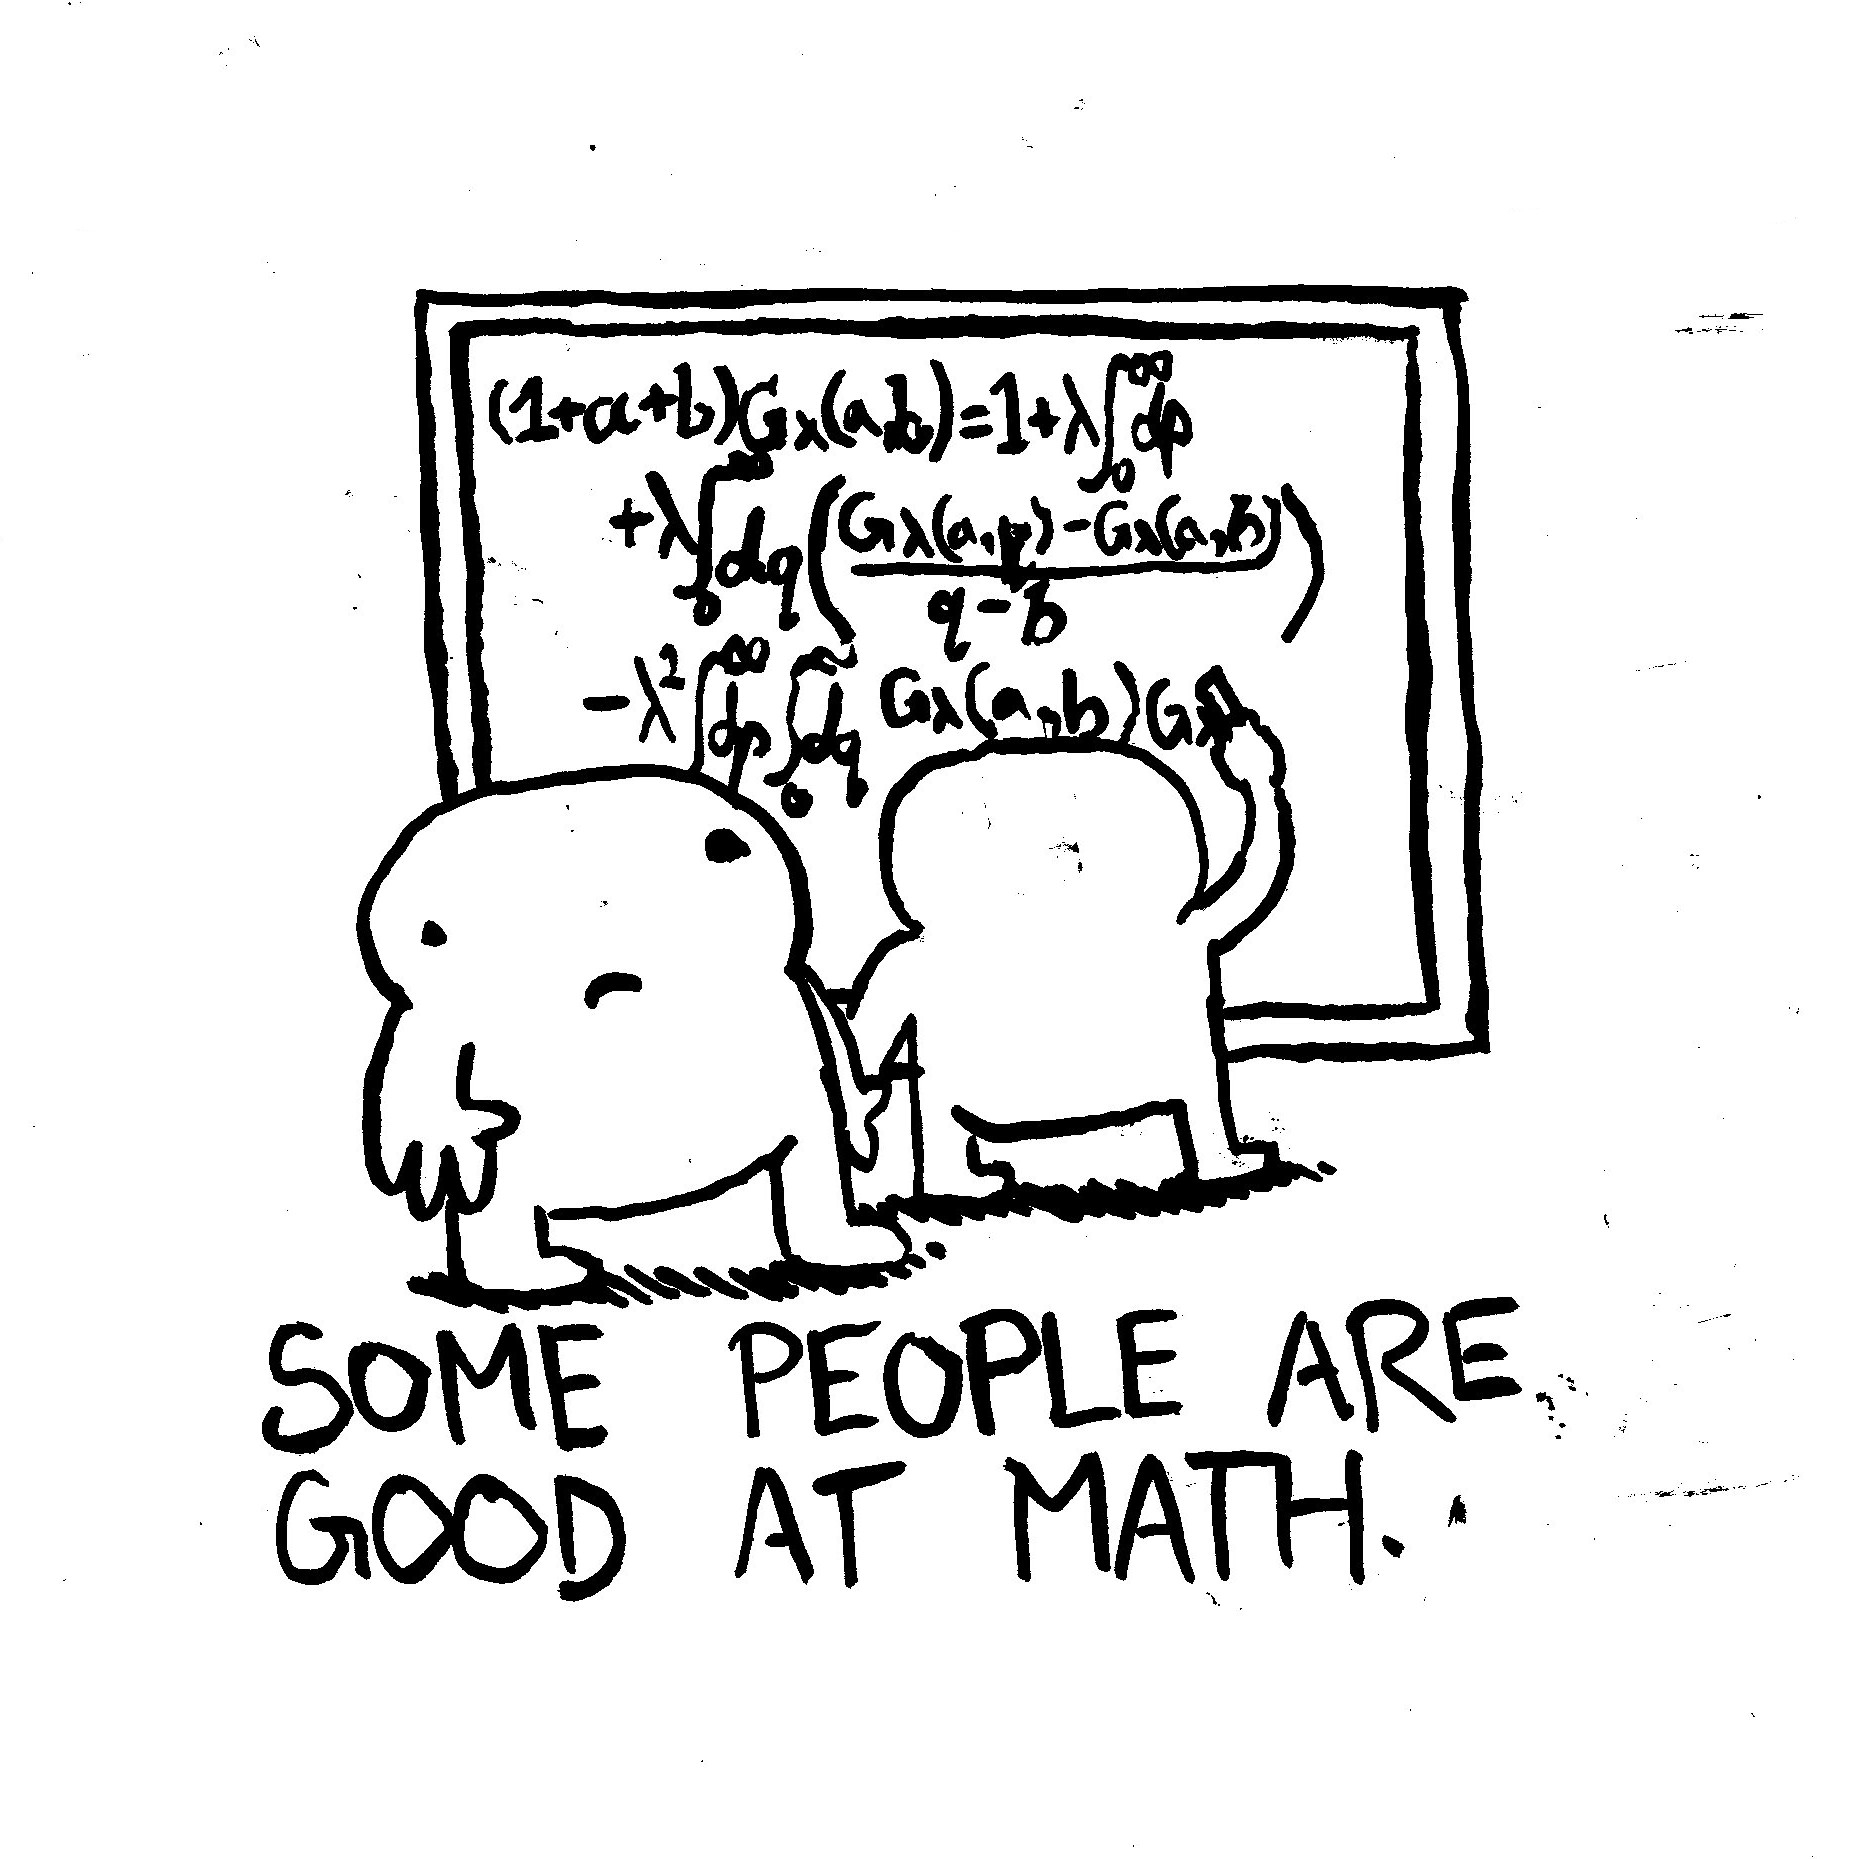 (1+a+b)Gλ(a,b)=1+λ∫₀^∞dp
+λ∫₀^∞dq(Gλ(a,p)-Gλ(a,b)/q-b)
-λ²∫₀^∞dp∫₀^∞dq Gλ(a,b)Gλ
SOME PEOPLE ARE
GOOD AT MATH.